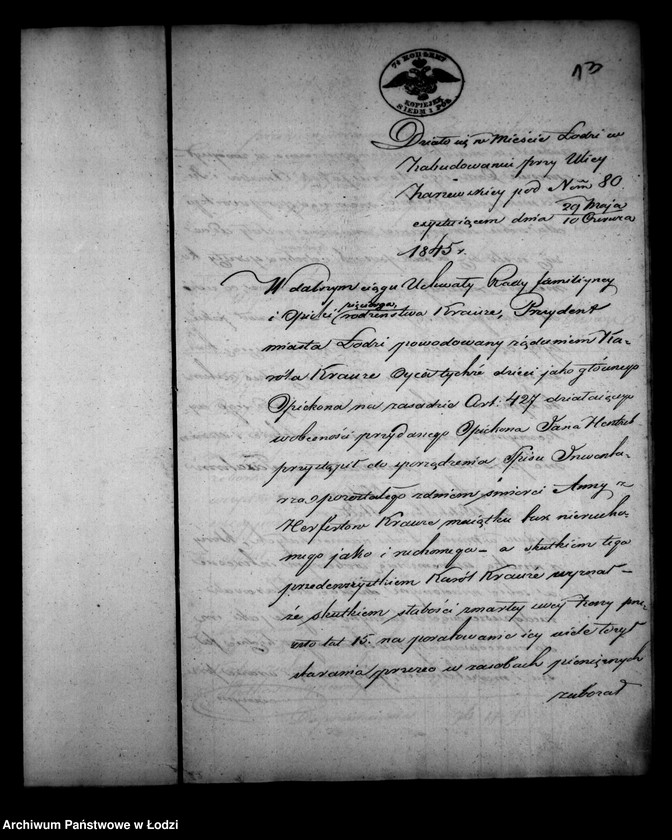 7½ KOP. SREBR.
KOPIEJEK
MIEDZ. I PÓŁ
13
Działo się w Mieście Łodzi w
Zabudowaniu przy Ulicy
Zarzewskiey pod Nrm 80
dnia 29 Maja / 10 Czerwca
1845 r.
W dalszym ciągu Uchwały Rady familiyney
i Opieki rodzeństwa Krauze, Prezydent
miasta Łodzi powodowany żądaniem Ka-
róla Krauze Oyca tychże dzieci jako głównego
Opiekona na zasadzie Art: 427 działaiącego
w obecności przydanego Opiekona Jana Hentschl
przystąpił do sporządzenia Spisu Inwenta-
rza pozostałego zdniem śmierci Anny z
Herfertow Krauze maiątku bąć nierucho-
mego jako i ruchomego – a skutkiem tego
przedewszystkiem Karól Krauze wyznał –
że skutkiem słabości zmarłey swey żony prze-
szło lat 15. na poratowanie iey wiele łożył
starania przezco w zasobach pieniężnych
zubożał
Archiwum Państwowe w Łodzi